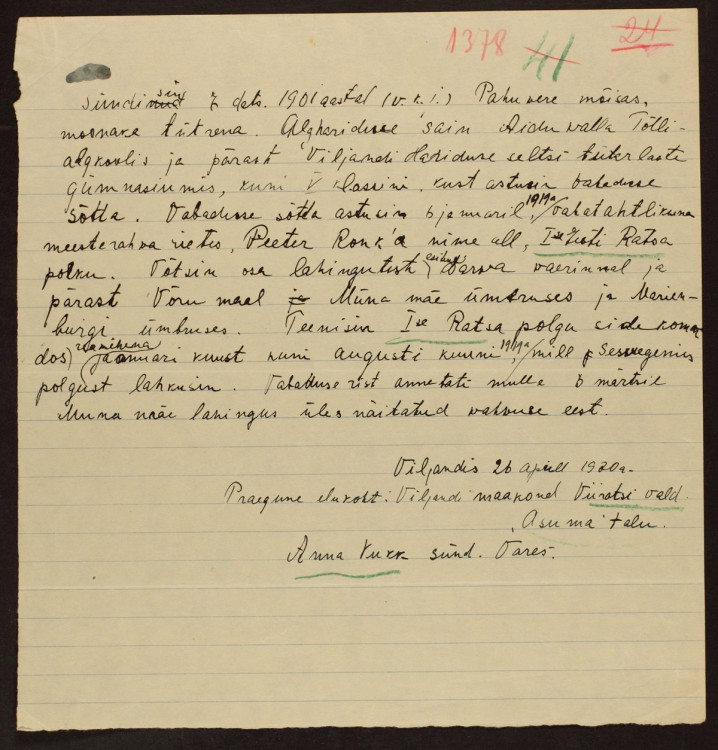 1378 41 24
Sündisin 7 dets. 1901 aastal (v. k. j.) Pahuvere mõisas,
moonaka tütrena. Alghariduse sain Aidu valla Tõlli-
algkoolis ja pärast Viljandi Hariduse seltsi tüterlaste
gümnasiumis, kuni V klassini, kust astusin vabaduse
sõtta. Vabaduse sõtta astusin 6 januaril, 1919a vabatahtlikuna
meesterahva rietes, Peeter Ronk'a nime all, Ise Eesti Ratsa
polku. Võtsin osa lahingutest Narva vaerinnal ja
pärast Võru maal ja Muna mäe ümbruses ja Marien-
burgi ümbruses. Teenisin Ise Ratsa polgu side koman
dos) jaanuari kuust kuni augusti kuuni, 1919a, mill
polgust lahkusin. Vabaduse rist anneteti mulle 6 märtsil
Muna mäe lahingus üles näitatud vahvuse eest.
Viljandis 26 aprill 1920a.
Praegune elukoht: Viljandi maakond Viiratsi vald.
"Asuma" talu.
Anna Vukk sünd. Vares.